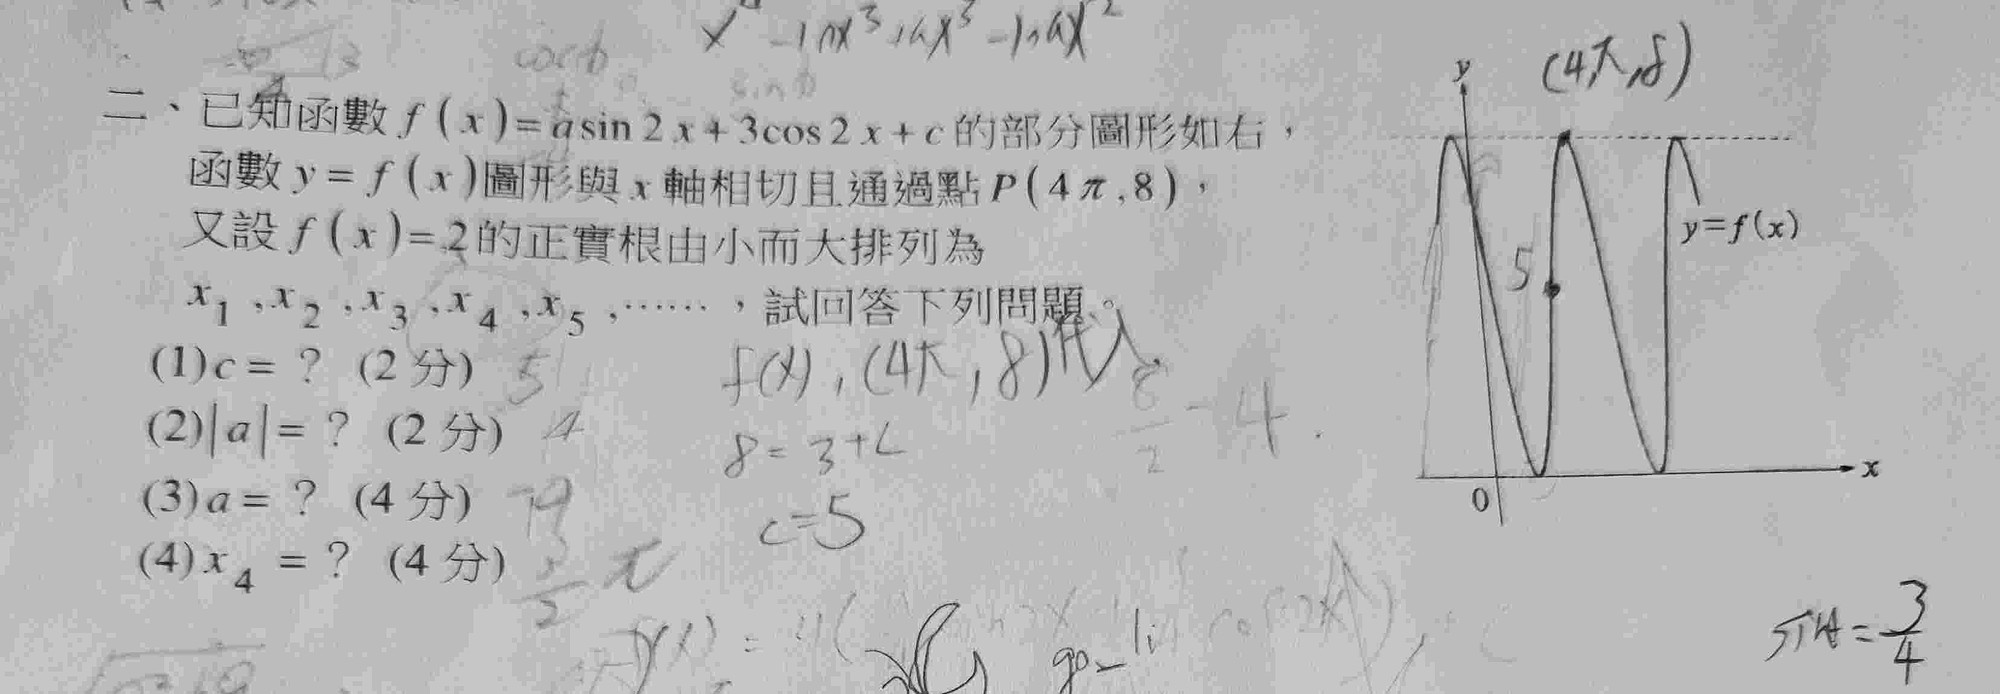 二、已知函數 f(x)=asin2x+3cos2x+c 的部分圖形如右，
函數 y=f(x)圖形與 x 軸相切且通過點 P(4π,8)，
又設 f(x)=2的正實根由小而大排列為
x₁,x₂,x₃,x₄,x₅,……，試回答下列問題。
(1)c=? (2分) 5
(2)|a|=? (2分) 4
(3)a=? (4分)
(4)x₄=? (4分) 3/2 π
f(x), (4π,8)代入
8=3+c
c=5
8/2 = 4
(4π,8)
y
5
y=f(x)
0
x
= 3/4